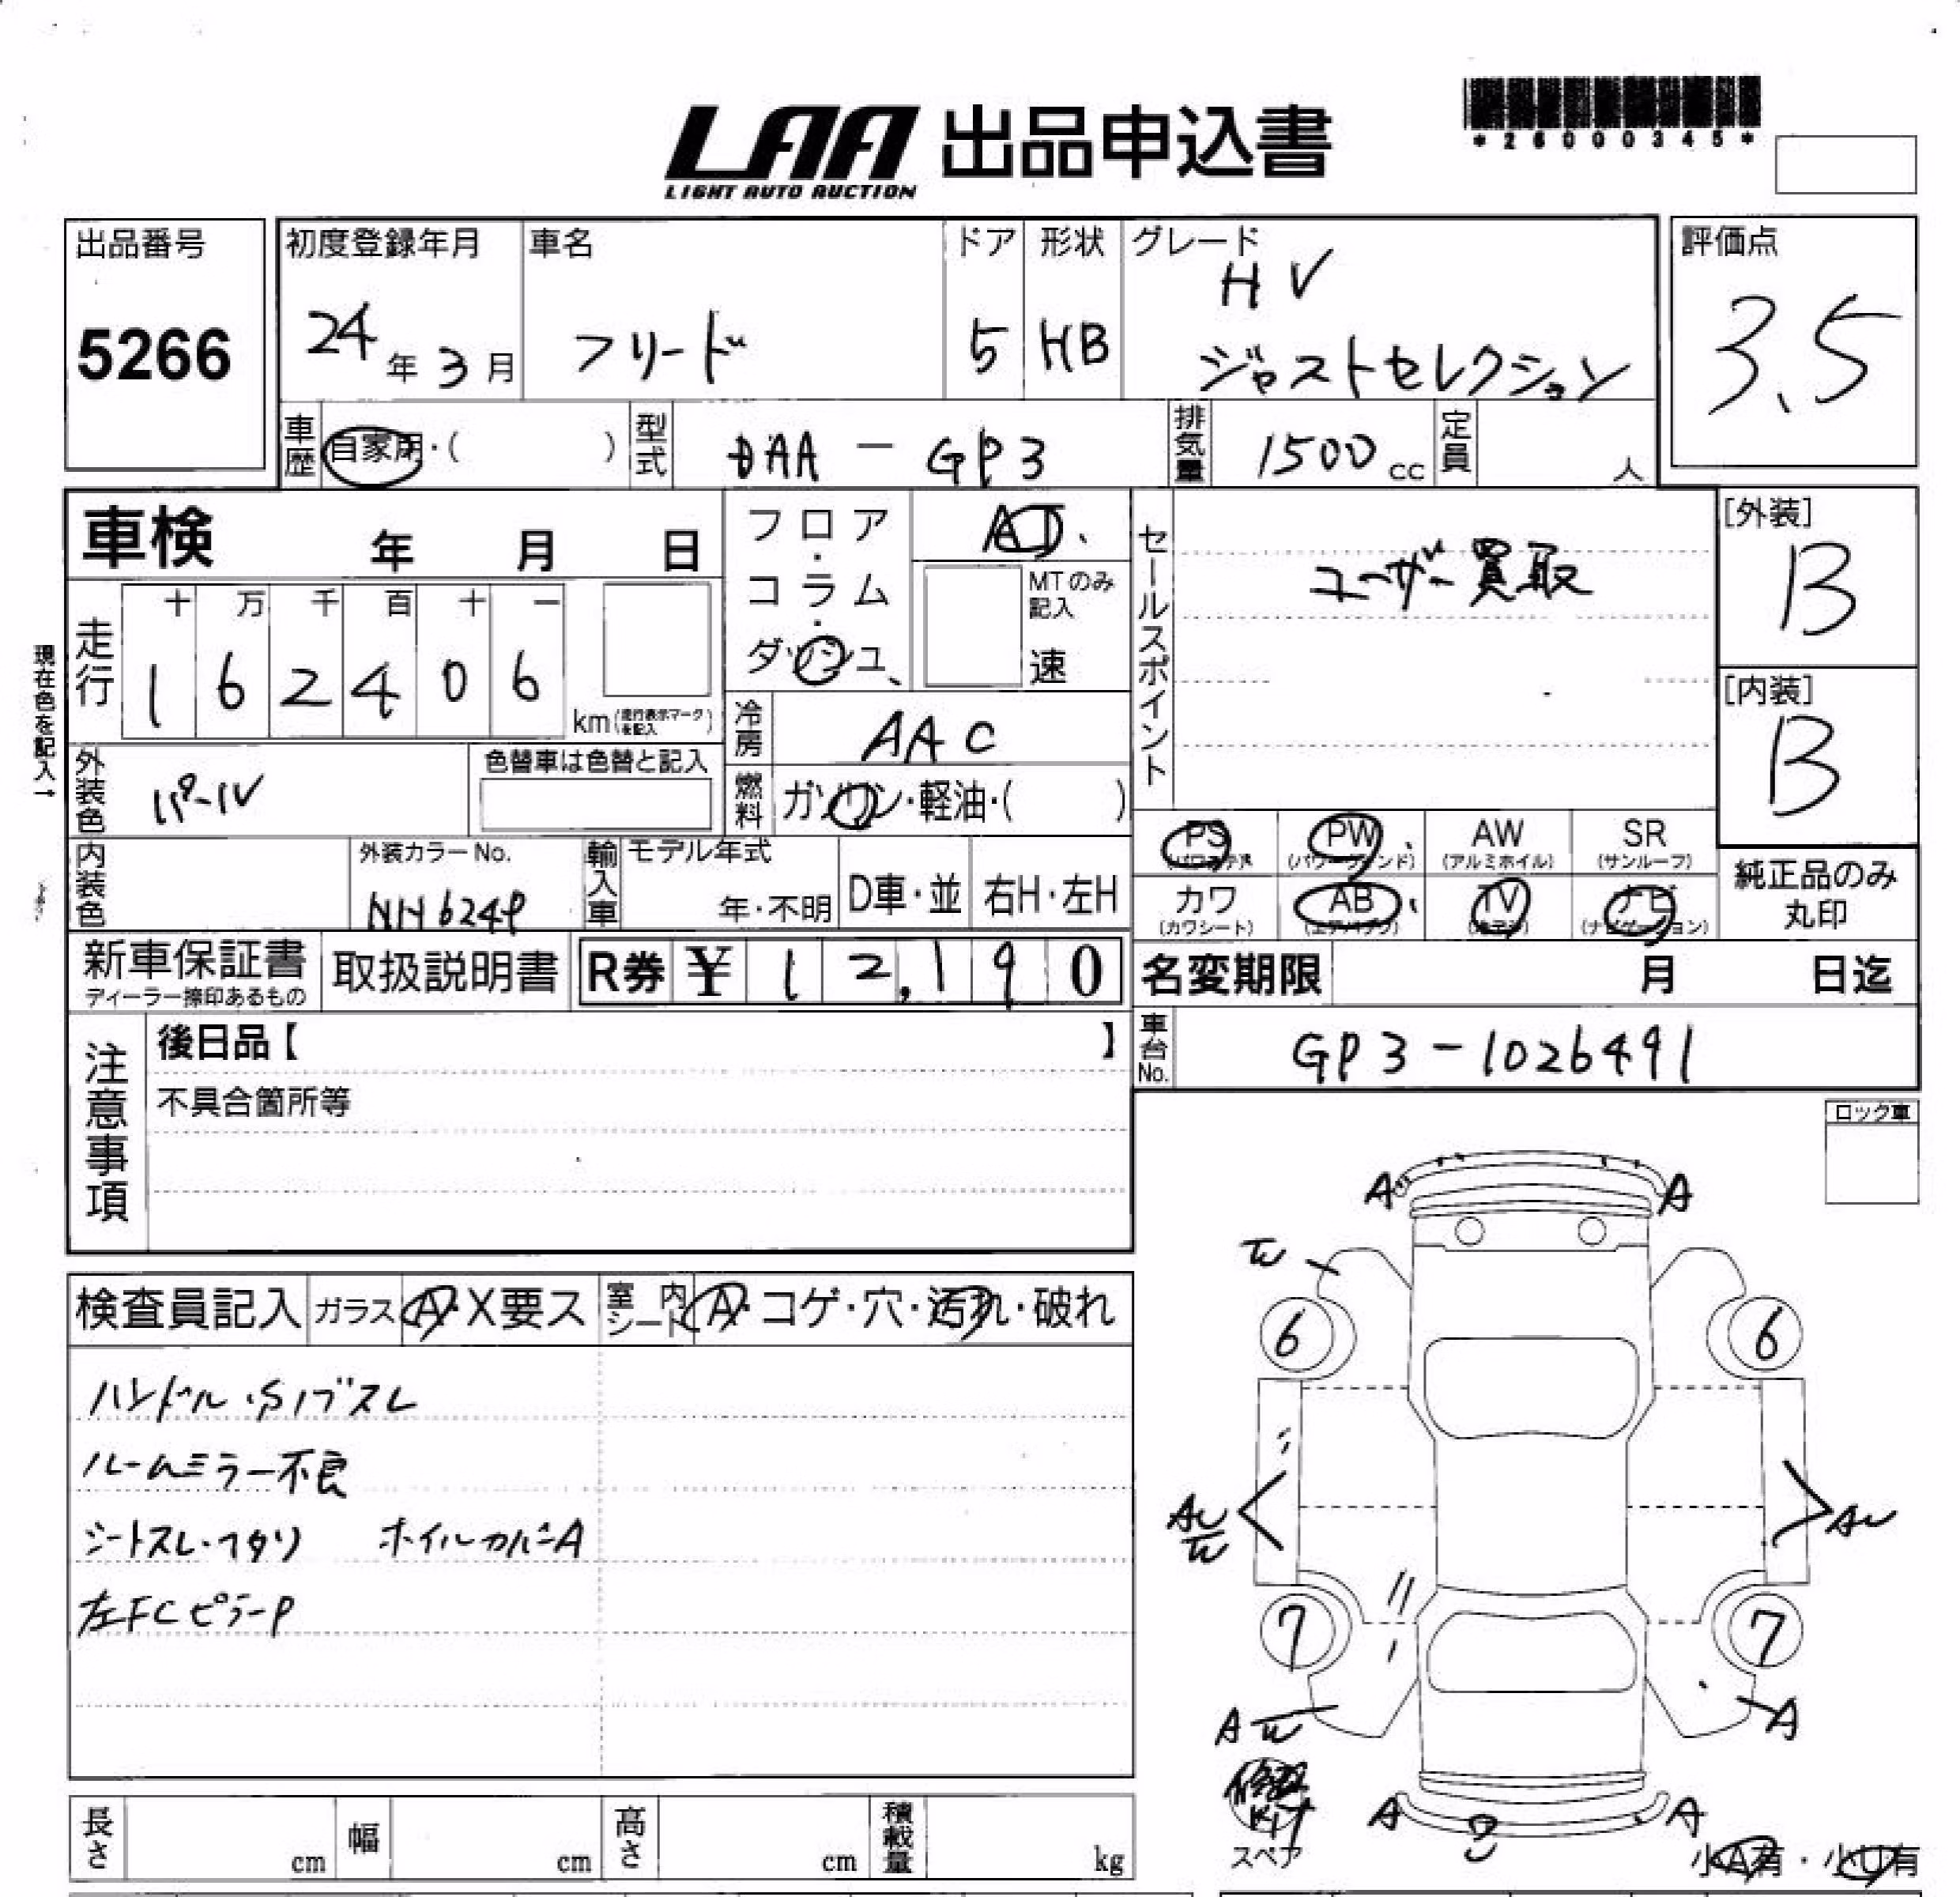 LAA 出品申込書
LIGHT AUTO AUCTION
*26000345*
出品番号
5266
初度登録年月
24年3月
車名
フリード
ドア
5
形状
HB
グレード
HV
ジャストセレクション
評価点
3.5
車歴
自家用・( )
型式
DAA - GP3
排気量
1500cc
定員
人
車検 年 月 日
フロア・コラム・ダッシュ
MTのみ記入
速
セールスポイント
ユーザー買取
[外装]
B
[内装]
B
現在色を記入→
走行
十 万 千 百 十 一
1 6 2 4 0 6
km(走行表示マークを記入)
冷房
AAC
外装色
パール
色替車は色替と記入
燃料
ガソリン・軽油・( )
PS
PW
(パワーウインド)
AW
(アルミホイル)
SR
(サンルーフ)
内装色
外装カラーNo.
NH624P
輸入車
モデル年式
年・不明
D車・並
右H・左H
カワ
(カワシート)
AB
(エアバッグ)
TV
ナビ
(ナビゲーション)
純正品のみ丸印
新車保証書
ディーラー捺印あるもの
取扱説明書
R券 ¥ 12,190
名変期限 月 日迄
注意事項
後日品【 】
不具合箇所等
車台No.
GP3-1026491
ロック車
検査員記入
ガラス A・X要ス
室内シート A・コゲ・穴・汚れ・破れ
ハンドル・S/ブスレ
ルームミラー不良
シートスレ・ヘタリ ホイルカバーA
左FCピラーP
A A
6 6
7 7
A
A A
スペア
小A有・小U有
長さ cm
幅 cm
高さ cm
積載量 kg